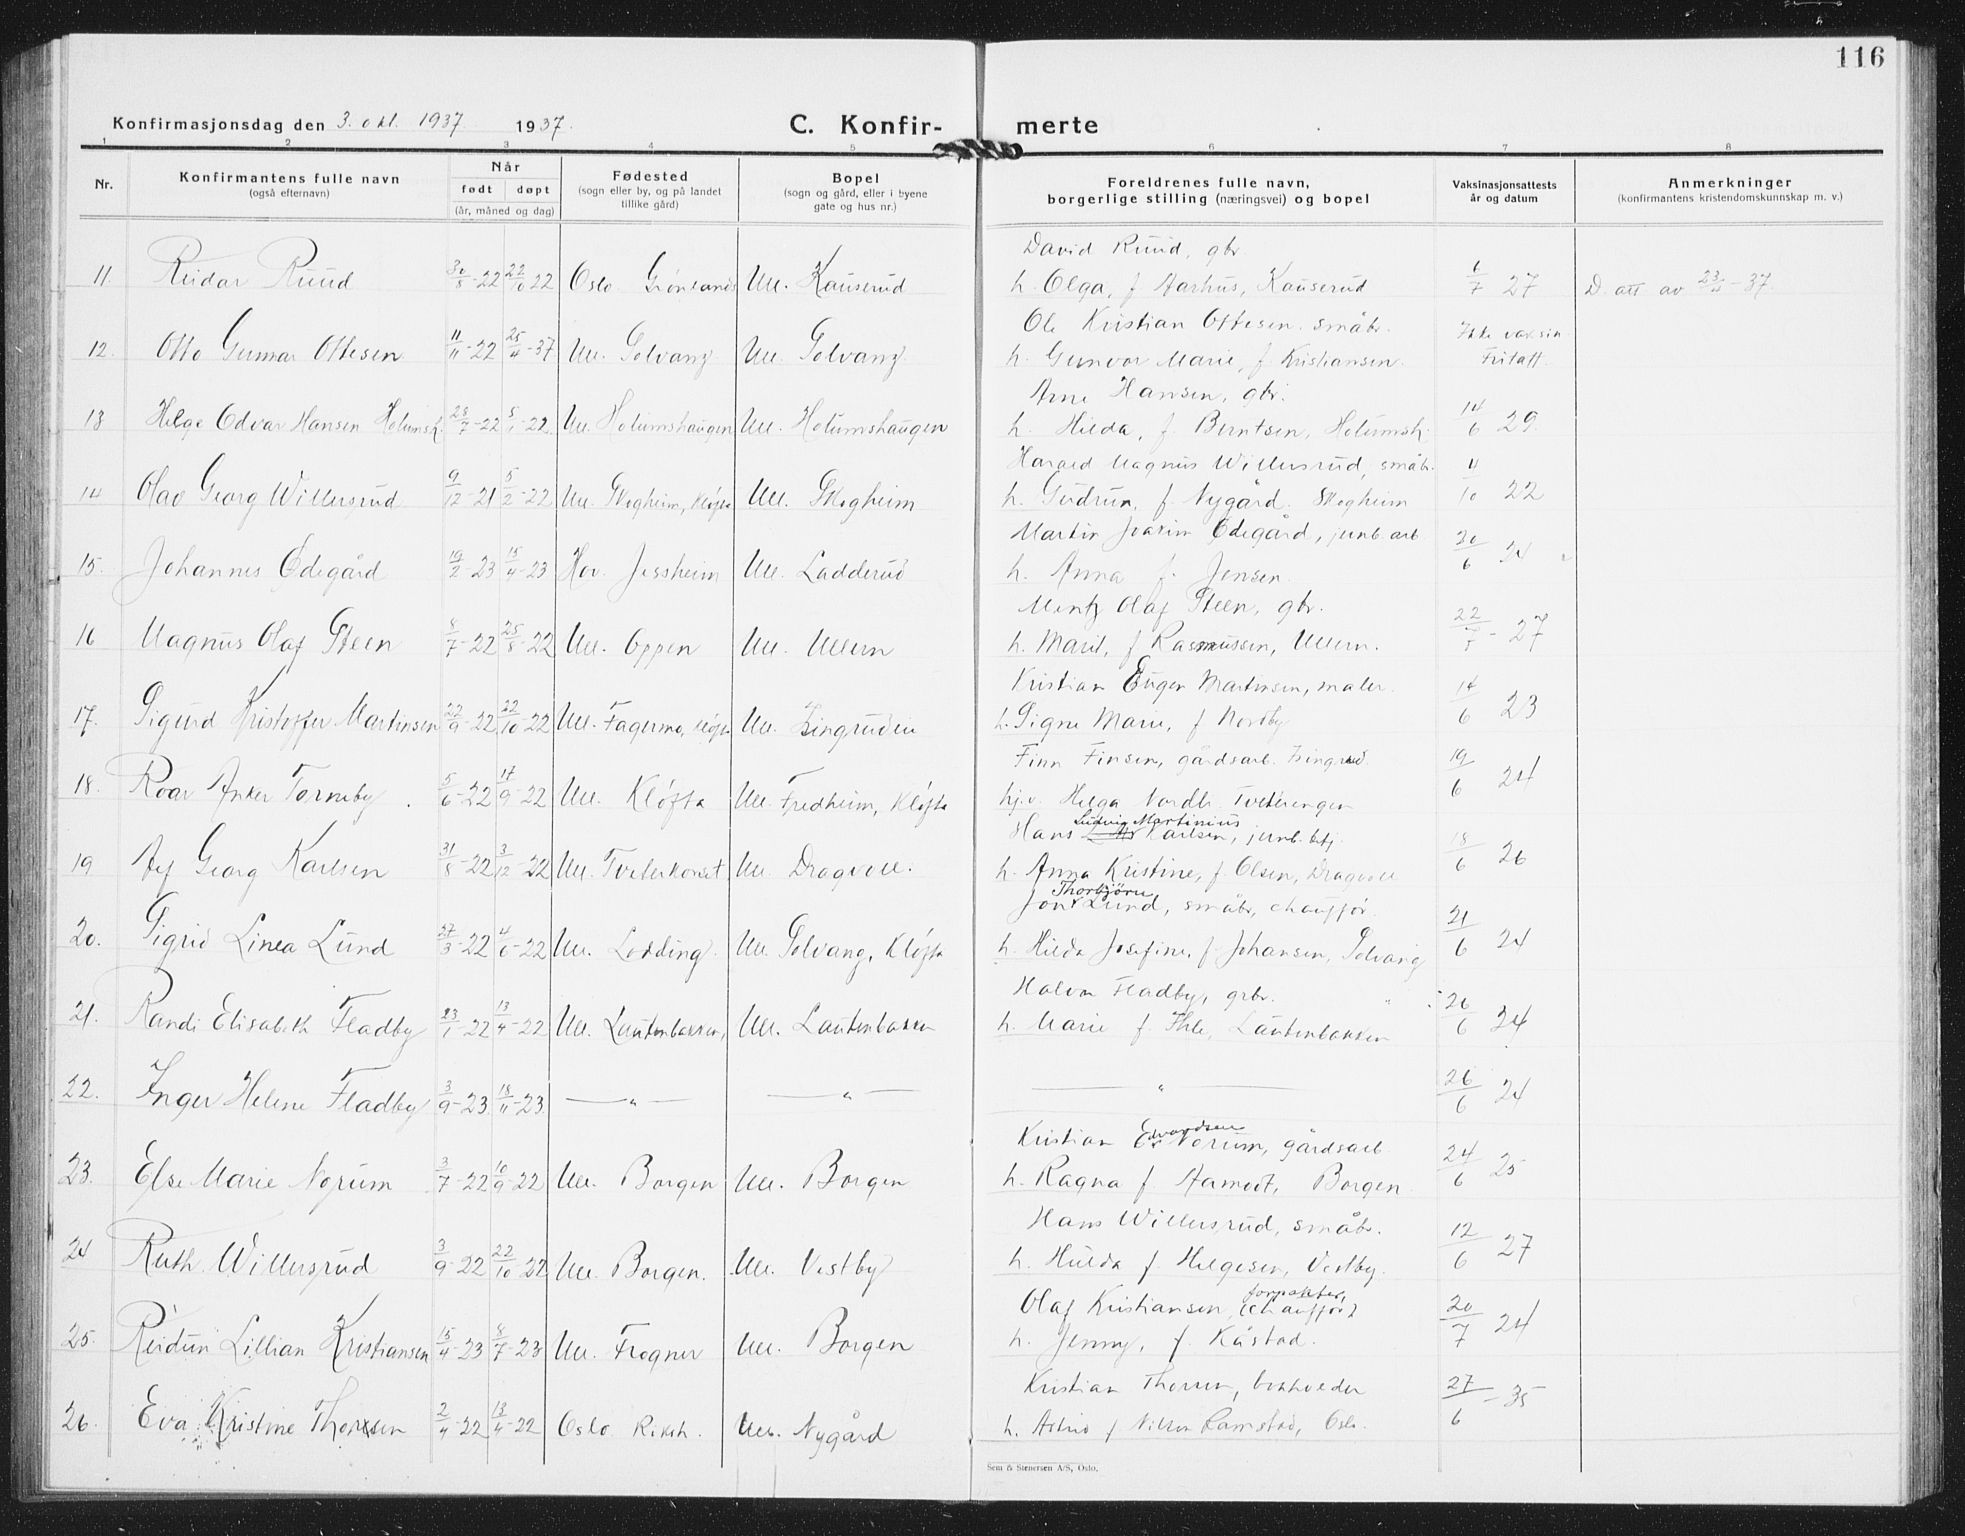 116
Konfirmasjonsdag den 3. okt. 1937. 1937.
C. Konfir- merte
1 2 3 4 5 6 7 8
Nr.
Konfirmantens fulle navn
(også efternavn)
Når
født døpt
(år, måned og dag)
Fødested
(sogn eller by, og på landet
tillike gård)
Bopel
(sogn og gård, eller i byene
gate og hus nr.)
Foreldrenes fulle navn,
borgerlige stilling (næringsvei) og bopel
Vaksinasjonsattests
år og datum
Anmerkninger
(konfirmantens kristendomskunnskap m. v.)
David Ruud, gbr.
11. Reidar Ruud 30/8-22 22/10 22 Oslo Grønlands Ull. Kauserud h. Olga, f. Aarhus, Kauserud 6/7 27 D. att av 23/4-37.
Ole Kristian Ottesen småbr.
12. Otto Gunnar Ottesen 11/11-22 25/4-37 Ull. Solvang Ull. Solvang h. Gunvor Marie, f. Kristiansen. Ikke vaksin Fritatt.
Arne Hansen, gbr.
13 Helge Odvar Hansen Holumsh. 28/7-22 5/1-22 Ull. Holumshaugen Ull. Holumshaugen h. Hilda, f. Berntsen, Holumsh. 14/6 29
Harald Magnus Willersrud, småbr.
14 Olav Georg Willersrud 9/12-21 5/2-22 Ull. Skogheim, Kløfta Ull. Skogheim h. Gudrun, f. Nygård. Skogheim 4/10 22
Martin Joakim Ødegård, jernb.arb.
15. Johannes Ødegård 19/2-23 15/4-23 Hov. Jessheim Ull. Ladderud h. Anna f. Jensen. 20/6 24
Mentz Olaf Steen, gbr.
16 Magnus Olaf Steen 8/7-22 25/8-22 Ull. Oppen Ull. Ullern h. Marit, f. Rasmussen, Ullern. 22/7-27
Kristian Eugen Martinsen, maler.
17. Sigurd Kristoffer Martinsen 22/9-22 22/10-22 Ull. Fagermo, Kløfta Ull. h. Signe Marie, f. Nordby 14/6 23
Finn Finsen, gårdsarb.
18. Roar Anker Torneby. 5/6-22 17/9-22 Ull. Kløfta Ull. Fredheim, Kløfta hj.v. Helga Nordb. Tveterengen 19/6 24
Ludvig Martinius
Hans Karlsen, jernb. betj.
19 Georg Karlsen 31/8-22 3/12-22 Ull. Tveterkorset Ull. Dragvoll. h. Anna Kristine, f. Olsen, Dragvoll 18/6 26
Thorbjørn
Jon Lund, småbr, chauffør.
20. Sigrid Linea Lund 27/3-22 4/6-22 Ull. Lodding Ull. Solvang, Kløfta h. Hilda Josefine, f. Johansen, Solvang 21/6 24
Halvor Fladby, grbr.
21. Randi Elisabeth Fladby 23/1-22 13/4-22 Ull. Lautenbakken, Ull. Lautenbakken h. Marie f. Ihle, Lautenbakken 26/6 24
22. Inger Helene Fladby 3/9-23 18/11-23 — " — — " — — " — 26/6 24
Edvardsen
Kristian E. Norum, gårdsarb.
23. Else Marie Norum 3/7-22 10/9-22 Ull. Borgen Ull. Borgen h. Ragna f. Aamodt, Borgen 24/6 25
Hans Willersrud, småbr.
24 Ruth Willersrud 3/9-22 22/10-22 Ull. Borgen. Ull. Vestby h. Hulda f. Helgesen, Vestby. 12/6 27
forpakter,
Olaf Kristiansen, (chauffør)
25. Reidun Lillian Kristiansen 15/4-23 8/7-23 Ull. Frogner Ull. Borgen h. Jenny, f. Kåstad. 20/7 24
Kristian Thorsen, bokholder
26. Eva Kristine Thorsen 2/4-22 13/4-22 Oslo Riksh. Ull. Nygård h. Astrid f. Nilsen Ramstad, Oslo. 27/6-35
Sem & Stenersen A/S, Oslo.